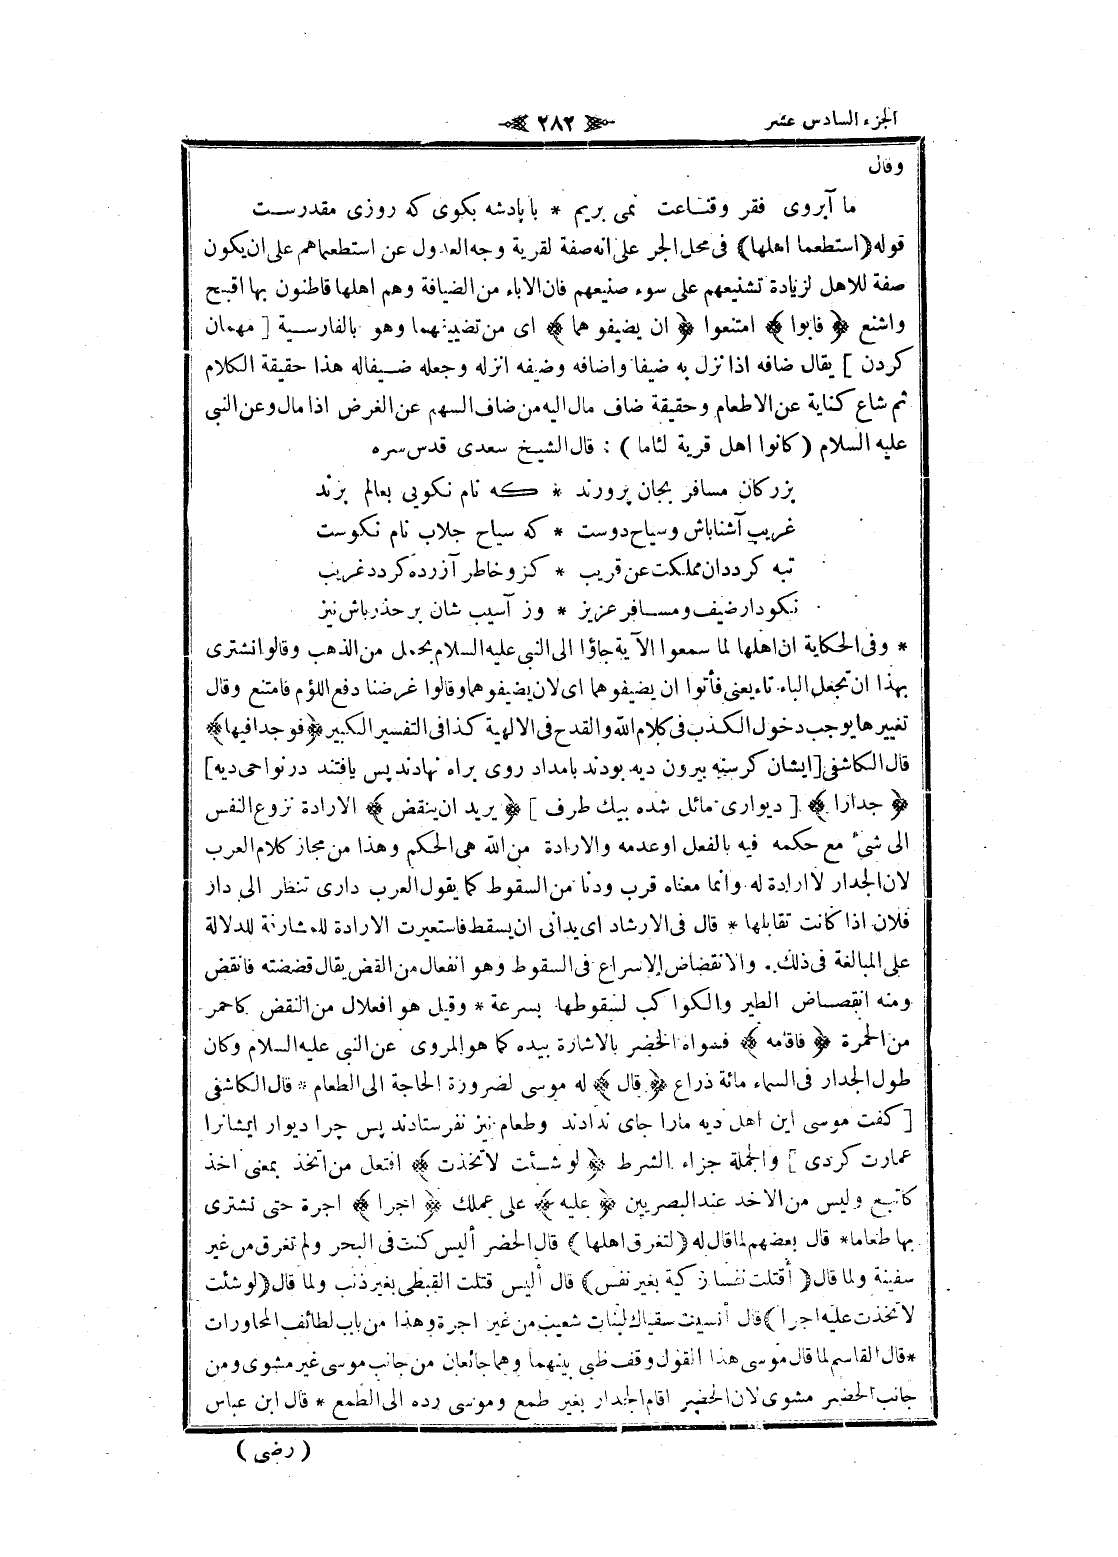 الجزء السادس عشر
٢٨٢
وقال
ما آبروى فقر وقناعت نمى بريم * با پادشه بكوى كه روزى مقدرست
قوله (استطعما اهلها) فى محل الجر على انه صفة لقرية وجه العدول عن استطعماهم على ان يكون
صفة للاهل لزيادة تشنيعهم على سوء صنيعهم فان الاباء من الضيافة وهم اهلها قاطنون بها اقبح
واشنع ﴿ فابوا ﴾ امتنعوا ﴿ ان يضيفوهما ﴾ اى من تضييفهما وهو بالفارسية [ مهمان
كردن ] يقال ضافه اذا نزل به ضيفا واضافه وضيفه انزله وجعله ضيفاله هذا حقيقة الكلام
ثم شاع كناية عن الاطعام وحقيقة ضاف مال اليه من ضاف السهم عن الغرض اذا مال وعن النبى
عليه السلام ( كانوا اهل قرية لئاما ) : قال الشيخ سعدى قدس سره
بزركان مسافر بجان پرورند * كه نام نكويى بعالم برند
غريب آشنا باش وسياح دوست * كه سياح جلاب نام نكوست
تبه كردد ان مملكت عن قريب * كزو خاطر آزرده كردد غريب
نكودار ضيف ومسافر عزيز * وز آسيب شان بر حذر باش نيز
* وفى الحكاية ان اهلها لما سمعوا الآية جاؤا الى النبى عليه السلام بحمل من الذهب وقالوا نشترى
بهذا ان تجعل الباء تاء يعنى فأتوا ان يضيفوهما اى لان يضيفوهما وقالوا غرضنا دفع اللؤم فامتنع وقال
تغييرها يوجب دخول الكذب فى كلام الله والقدح فى الالهية كذا فى التفسير الكبير ﴿ فوجدا فيها ﴾
قال الكاشفى [ ايشان كرسنه بيرون ديه بودند بامداد روى براه نهادند پس يافتند در نواحى ديه ]
﴿ جدارا ﴾ [ ديوارى مائل شده بيك طرف ] ﴿ يريد ان ينقض ﴾ الارادة نزوع النفس
الى شئ مع حكمه فيه بالفعل او عدمه والارادة من الله هى الحكم وهذا من مجاز كلام العرب
لان الجدار لا ارادة له وانما معناه قرب ودنا من السقوط كما يقول العرب دارى تنظر الى دار
فلان اذا كانت تقابلها * قال فى الارشاد اى يدانى ان يسقط فاستعيرت الارادة للمشارفة للدلالة
على المبالغة فى ذلك . والانقضاض الاسراع فى السقوط وهو انفعال من القض يقال قضضته فانقض
ومنه انقضاض الطير والكواكب لسقوطها بسرعة * وقيل هو افعلال من النقض كاحمر
من الحمرة ﴿ فاقامه ﴾ فسواه الخضر بالاشارة بيده كما هو المروى عن النبى عليه السلام وكان
طول الجدار فى السماء مائة ذراع ﴿ قال ﴾ له موسى لضرورة الحاجة الى الطعام * قال الكاشفى
[ كفت موسى اين اهل ديه مارا جاى ندادند وطعام نيز نفرستادند پس چرا ديوار ايشانرا
عمارت كردى ] والجملة جزاء الشرط ﴿ لو شئت لاتخذت ﴾ افتعل من اتخذ بمعنى اخذ
كاتبع وليس من الاخذ عند البصريين ﴿ عليه ﴾ على عملك ﴿ اجرا ﴾ اجرة حتى نشترى
بها طعاما * قال بعضهم لما قال له (لتغرق اهلها) قال الخضر أليس كنت فى البحر ولم تغرق من غير
سفينة ولما قال (أقتلت نفسا زكية بغير نفس) قال أليس قتلت القبطى بغير ذنب ولما قال (لو شئت
لاتخذت عليه اجرا) قال أنسيت سقياك لبنات شعيب من غير اجرة وهذا من باب لطائف المحاورات
* قال القاسم لما قال موسى هذا القول وقف ظبى بينهما وهما جائعان من جانب موسى غير مشوى ومن
جانب الخضر مشوى لان الخضر اقام الجدار بغير طمع وموسى رده الى الطمع * قال ابن عباس
( رضى )